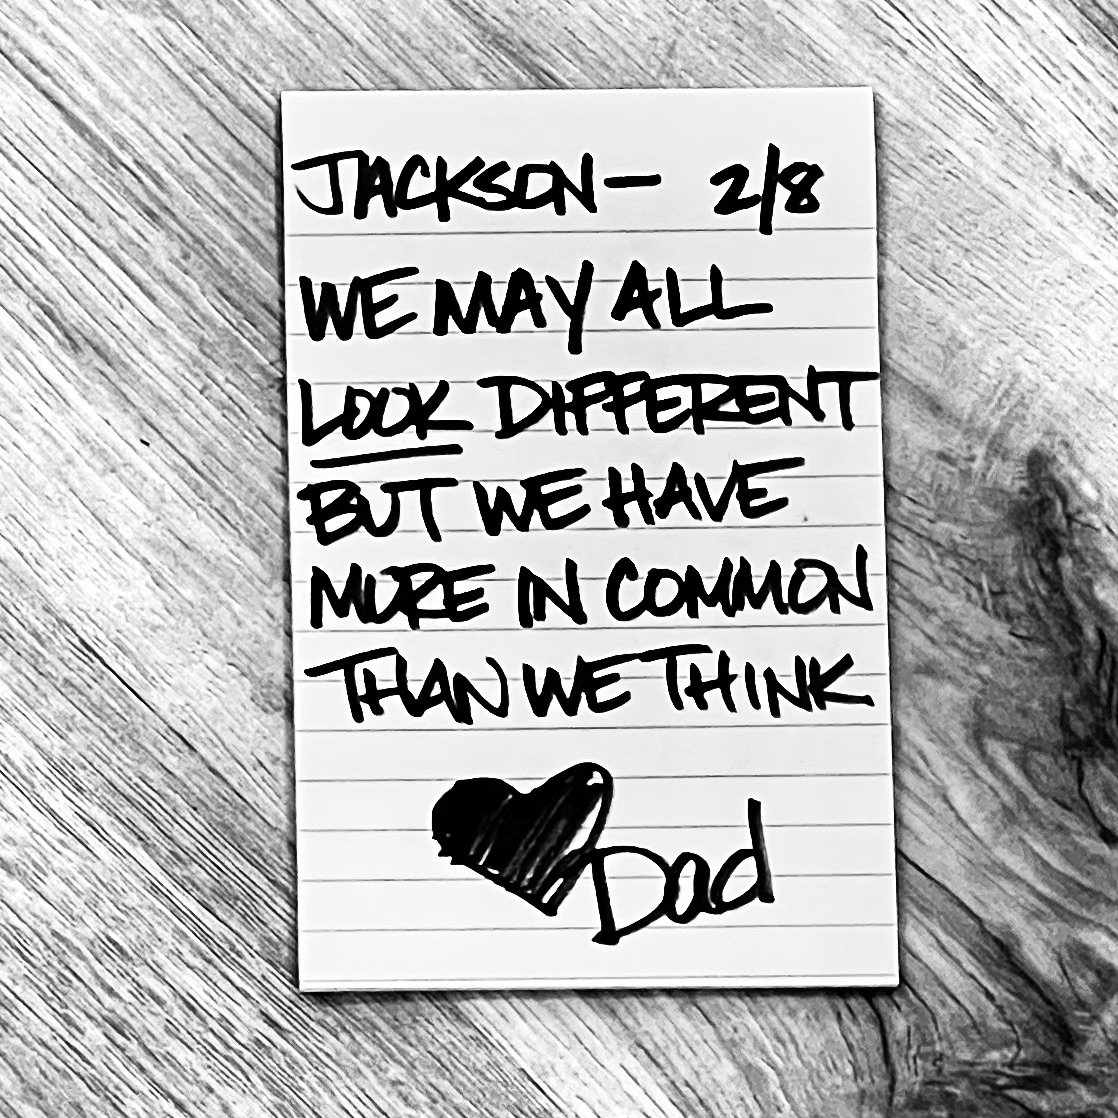 JACKSON— 2/8
WE MAY ALL
LOOK DIFFERENT
BUT WE HAVE
MORE IN COMMON
THAN WE THINK
Dad